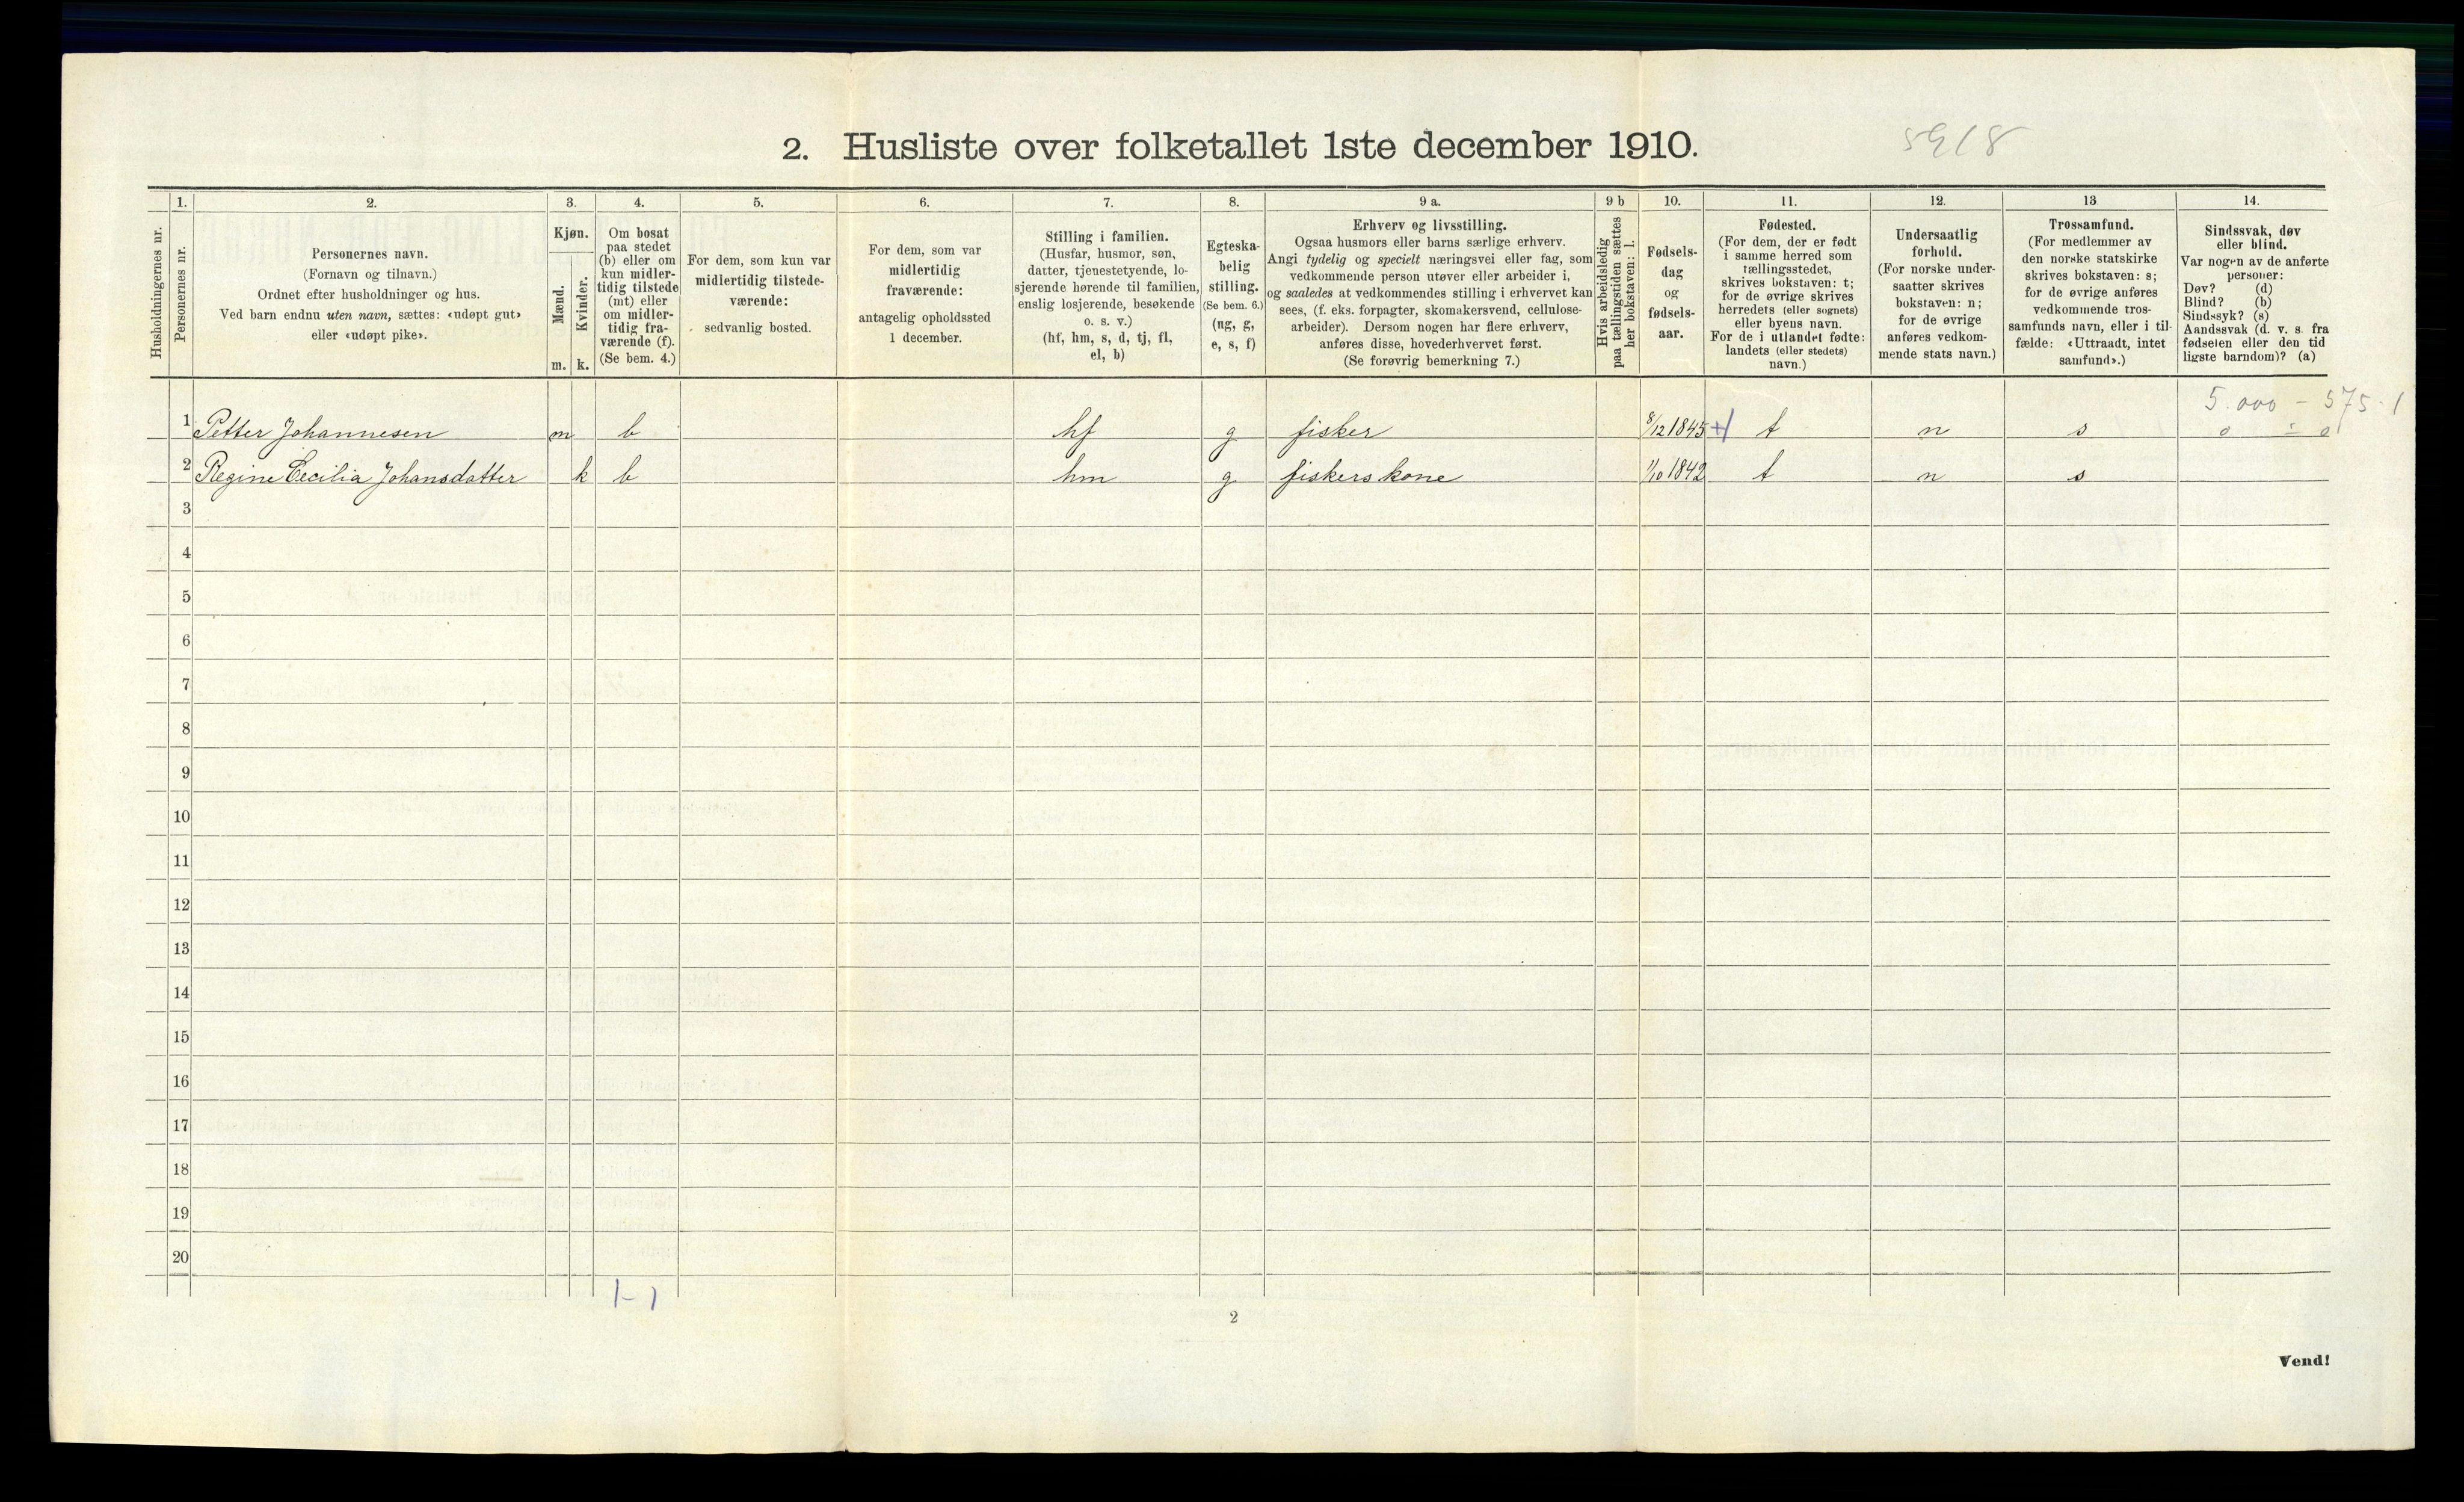 2. Husliste over folketallet 1ste december 1910.
Husholdningernes nr.
1.
Personernes nr.
2.
Personernes navn.
(Fornavn og tilnavn.)
Ordnet efter husholdninger og hus.
Ved barn endnu uten navn, sættes: «udøpt gut»
eller «udøpt pike».
3.
Kjøn.
Mænd.
Kvinder.
m. k.
4.
Om bosat
paa stedet
(b) eller om
kun midler-
tidig tilstede
(mt) eller
om midler-
tidig fra-
værende (f).
(Se bem. 4.)
5.
For dem, som kun var
midlertidig tilstede-
værende:
sedvanlig bosted.
6.
For dem, som var
midlertidig
fraværende:
antagelig opholdssted
1 december.
7.
Stilling i familien.
(Husfar, husmor, søn,
datter, tjenestetyende, lo-
sjerende hørende til familien,
enslig losjerende, besøkende
o. s. v.)
(hf, hm, s, d, tj, fl,
el, b)
8.
Egteska-
belig
stilling.
(Se bem. 6.)
(ug, g,
e, s, f)
9 a.
Erhverv og livsstilling.
Ogsaa husmors eller barns særlige erhverv.
Angi tydelig og specielt næringsvei eller fag, som
vedkommende person utøver eller arbeider i,
og saaledes at vedkommendes stilling i erhvervet kan
sees, (f. eks. forpagter, skomakersvend, cellulose-
arbeider). Dersom nogen har flere erhverv,
anføres disse, hovederhvervet først.
(Se forøvrig bemerkning 7.)
9 b
Hvis arbeidsledig
paa tællingstiden sættes
her bokstaven: l.
10.
Fødsels-
dag
og
fødsels-
aar.
11.
Fødested.
(For dem, der er født
i samme herred som
tællingsstedet,
skrives bokstaven: t;
for de øvrige skrives
herredets (eller sognets)
eller byens navn.
For de i utlandet fødte:
landets (eller stedets)
navn.)
12.
Undersaatlig
forhold.
(For norske under-
saatter skrives
bokstaven: n;
for de øvrige
anføres vedkom-
mende stats navn.)
13
Trossamfund.
(For medlemmer av
den norske statskirke
skrives bokstaven: s;
for de øvrige anføres
vedkommende tros-
samfunds navn, eller i til-
fælde: «Uttraadt, intet
samfund».)
14.
Sindssvak, døv
eller blind.
Var nogen av de anførte
personer:
Døv? (d)
Blind? (b)
Sindssyk? (s)
Aandssvak (d. v. s. fra
fødselen eller den tid-
ligste barndom)? (a)
5.000 - 575-1
1 Petter Johannesen m b hf g fisker 8/12 1845 t n s 0 - 0
2 Regine Cecilia Johansdatter k b hm g fiskers kone 1/10 1842 t n s
3
4
5
6
7
8
9
10
11
12
13
14
15
16
17
18
19
20
1-1
2
Vend!